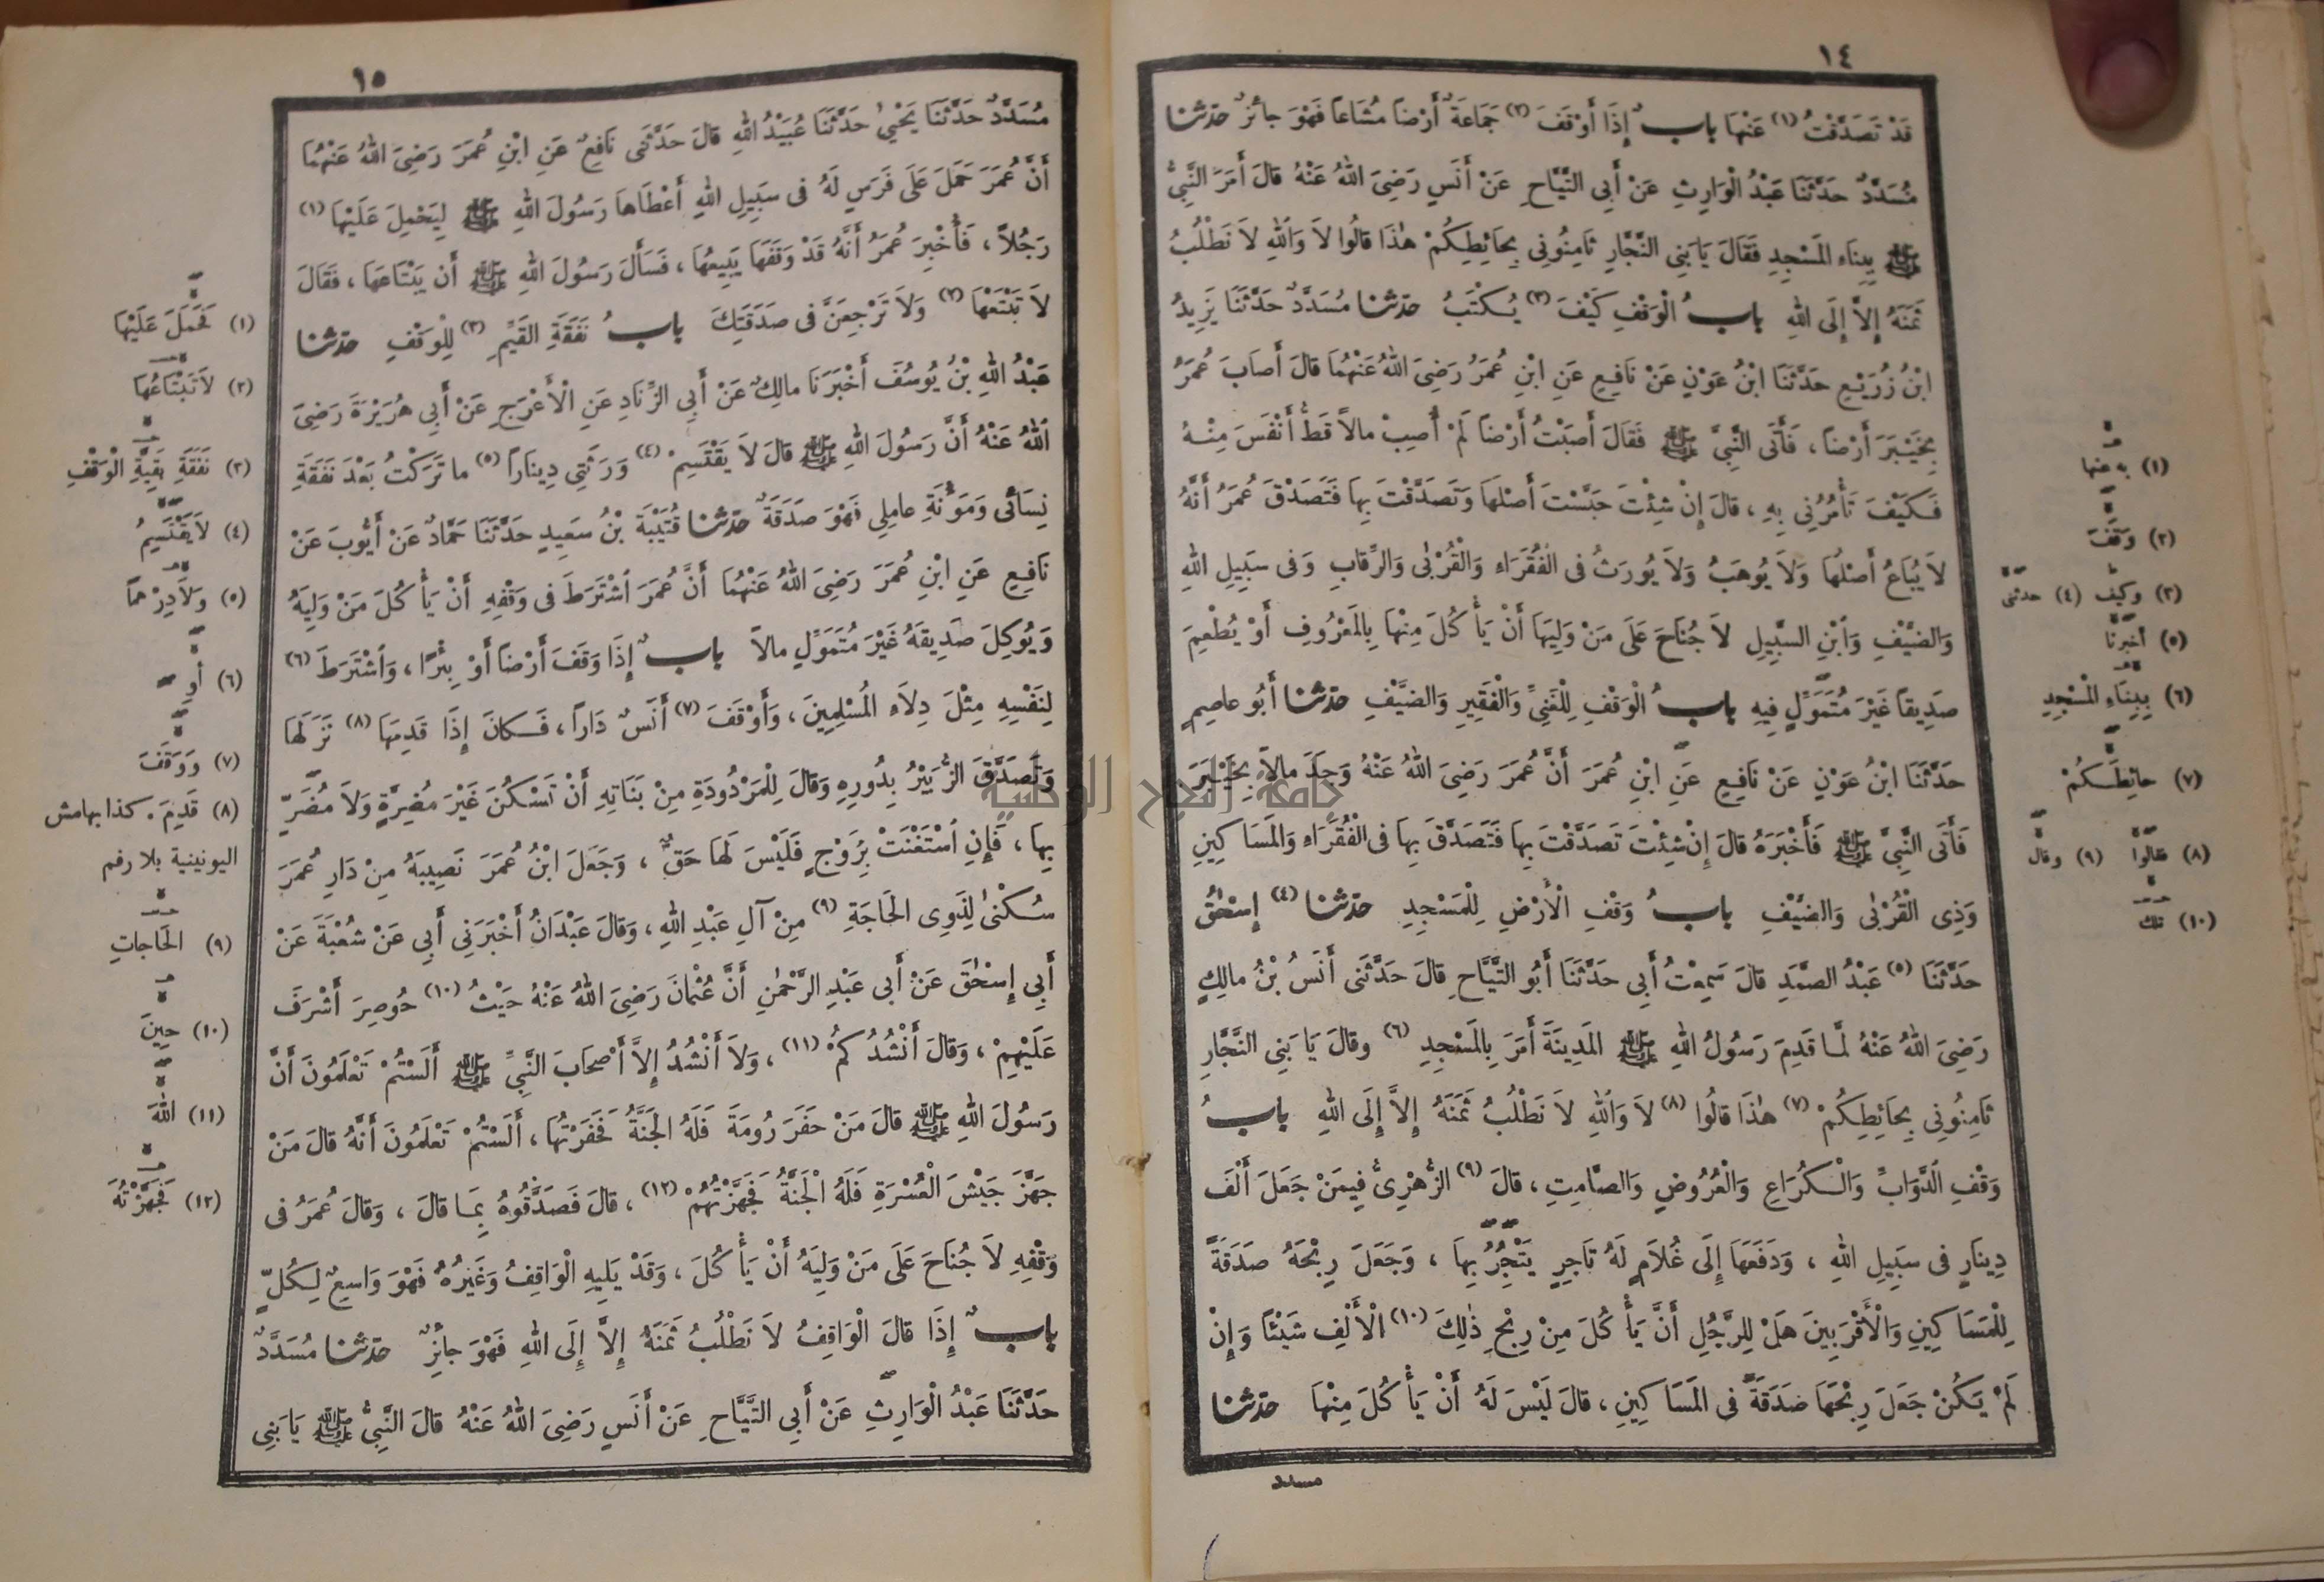 ١٤
قَدْ تَصَدَّقْتُ (١) عَنْهَا باب إِذَا أَوْقَفَ (٢) جَمَاعَةٌ أَرْضاً مُشَاعاً فَهْوَ جائزٌ حدثنا
مُسَدَّدٌ حَدَّثَنَا عَبْدُ الْوَارِثِ عَنْ أَبِي التَّيَّاحِ عَنْ أَنَسٍ رَضِيَ اللهُ عَنْهُ قالَ أَمَرَ النَّبِيُّ
ﷺ بِبِنَاءِ المَسْجِدِ فَقَالَ يَا بَنِي النَّجَّارِ ثَامِنُونِي بِحَائِطِكُمْ هٰذَا قالُوا لَا وَاللهِ لَا نَطْلُبُ
ثَمَنَهُ إِلَّا إِلَى اللهِ بابُ الْوَقْفِ كَيْفَ (٣) يُكْتَبُ حدثنا مُسَدَّدٌ حَدَّثَنَا يَزِيدُ
ابْنُ زُرَيْعٍ حَدَّثَنَا ابْنُ عَوْنٍ عَنْ نَافِعٍ عَنِ ابْنِ عُمَرَ رَضِيَ اللهُ عَنْهُمَا قالَ أَصَابَ عُمَرُ
بِخَيْبَرَ أَرْضاً ، فَأَتَى النَّبِيَّ ﷺ فَقَالَ أَصَبْتُ أَرْضاً لَمْ أُصِبْ مالاً قَطُّ أَنْفَسَ مِنْهُ
فَكَيْفَ تَأْمُرُنِي بِهِ ، قالَ إِنْ شِئْتَ حَبَّسْتَ أَصْلَهَا وَتَصَدَّقْتَ بِهَا فَتَصَدَّقَ عُمَرُ أَنَّهُ
لَا يُبَاعُ أَصْلُهَا وَلَا يُوهَبُ وَلَا يُورَثُ فِي الْفُقَرَاءِ وَالْقُرْبَى وَالرِّقَابِ وَفِي سَبِيلِ اللهِ
وَالضَّيْفِ وَابْنِ السَّبِيلِ لَا جُنَاحَ عَلَى مَنْ وَلِيَهَا أَنْ يَأْكُلَ مِنْهَا بِالمَعْرُوفِ أَوْ يُطْعِمَ
صَدِيقاً غَيْرَ مُتَمَوِّلٍ فِيهِ بابُ الْوَقْفِ لِلْغَنِيِّ وَالْفَقِيرِ وَالضَّيْفِ حدثنا أَبُو عاصِمٍ
حَدَّثَنَا ابْنُ عَوْنٍ عَنْ نَافِعٍ عَنِ ابْنِ عُمَرَ أَنَّ عُمَرَ رَضِيَ اللهُ عَنْهُ وَجَدَ مالاً بِخَيْبَرَ
فَأَتَى النَّبِيَّ ﷺ فَأَخْبَرَهُ قالَ إِنْ شِئْتَ تَصَدَّقْتَ بِهَا فَتَصَدَّقَ بِهَا فِي الْفُقَرَاءِ وَالمَسَاكِينِ
وَذِي الْقُرْبَى وَالضَّيْفِ بابُ وَقْفِ الْأَرْضِ لِلْمَسْجِدِ حدثنا (٤) إِسْحٰقُ
حَدَّثَنَا (٥) عَبْدُ الصَّمَدِ قالَ سَمِعْتُ أَبِي حَدَّثَنَا أَبُو التَّيَّاحِ قالَ حَدَّثَنِي أَنَسُ بْنُ مالِكٍ
رَضِيَ اللهُ عَنْهُ لَمَّا قَدِمَ رَسُولُ اللهِ ﷺ المَدِينَةَ أَمَرَ بِالمَسْجِدِ (٦) وقالَ يَا بَنِي النَّجَّارِ
ثَامِنُونِي بِحَائِطِكُمْ (٧) هٰذَا قالُوا (٨) لَا وَاللهِ لَا نَطْلُبُ ثَمَنَهُ إِلَّا إِلَى اللهِ بابُ
وَقْفِ الدَّوَابِّ وَالْكُرَاعِ وَالْعُرُوضِ وَالصَّامِتِ ، قالَ (٩) الزُّهْرِيُّ فِيمَنْ جَعَلَ أَلْفَ
دِينَارٍ فِي سَبِيلِ اللهِ ، وَدَفَعَهَا إِلَى غُلَامٍ لَهُ تَاجِرٍ يَتْجُرُ بِهَا ، وَجَعَلَ رِبْحَهُ صَدَقَةً
لِلْمَسَاكِينِ وَالْأَقْرَبِينَ هَلْ لِلرَّجُلِ أَنْ يَأْكُلَ مِنْ رِبْحِ ذٰلِكَ (١٠) الْأَلْفِ شَيْئًا وَإِنْ
لَمْ يَكُنْ جَعَلَ رِبْحَهَا صَدَقَةً فِي المَسَاكِينِ ، قالَ لَيْسَ لَهُ أَنْ يَأْكُلَ مِنْهَا حدثنا
مسدد
(١) به عنها
(٢) وَقَفَ
(٣) وكيف (٤) حدثني
(٥) أخبرنا
(٦) بِبِنَاءِ الْمَسْجِدِ
(٧) حائِطَكُمْ
(٨) فقالوا (٩) وقال
(١٠) تلك
١٥
مُسَدَّدٌ حَدَّثَنَا يَحْيَى حَدَّثَنَا عُبَيْدُ اللهِ قالَ حَدَّثَنِي نَافِعٌ عَنِ ابْنِ عُمَرَ رَضِيَ اللهُ عَنْهُمَا
أَنَّ عُمَرَ حَمَلَ عَلَى فَرَسٍ لَهُ فِي سَبِيلِ اللهِ أَعْطَاهَا رَسُولَ اللهِ ﷺ لِيَحْمِلَ عَلَيْهَا (١)
رَجُلاً ، فَأُخْبِرَ عُمَرُ أَنَّهُ قَدْ وَقَفَهَا يَبِيعُهَا ، فَسَأَلَ رَسُولَ اللهِ ﷺ أَنْ يَبْتَاعَهَا ، فَقَالَ
لَا تَبْتَعْهَا (٢) وَلَا تَرْجِعَنَّ فِي صَدَقَتِكَ بابُ نَفَقَةِ الْقَيِّمِ (٣) لِلْوَقْفِ حدثنا
عَبْدُ اللهِ بْنُ يُوسُفَ أَخْبَرَنَا مالِكٌ عَنْ أَبِي الزِّنَادِ عَنِ الْأَعْرَجِ عَنْ أَبِي هُرَيْرَةَ رَضِيَ
اللهُ عَنْهُ أَنَّ رَسُولَ اللهِ ﷺ قالَ لَا يَقْتَسِمْ (٤) وَرَثَتِي دِينَاراً (٥) ما تَرَكْتُ بَعْدَ نَفَقَةِ
نِسَائِي وَمَؤُنَةِ عامِلِي فَهْوَ صَدَقَةٌ حدثنا قُتَيْبَةُ بْنُ سَعِيدٍ حَدَّثَنَا حَمَّادٌ عَنْ أَيُّوبَ عَنْ
نَافِعٍ عَنِ ابْنِ عُمَرَ رَضِيَ اللهُ عَنْهُمَا أَنَّ عُمَرَ اشْتَرَطَ فِي وَقْفِهِ أَنْ يَأْكُلَ مَنْ وَلِيَهُ
وَيُوكِلَ صَدِيقَهُ غَيْرَ مُتَمَوِّلٍ مالاً بابٌ إِذَا وَقَفَ أَرْضاً أَوْ بِئْرًا ، وَاشْتَرَطَ (٦)
لِنَفْسِهِ مِثْلَ دِلَاءِ المُسْلِمِينَ ، وَأَوْقَفَ (٧) أَنَسٌ دَاراً ، فَكانَ إِذَا قَدِمَهَا (٨) نَزَلَهَا
وَتَصَدَّقَ الزُّبَيْرُ بِدُورِهِ وَقالَ لِلْمَرْدُودَةِ مِنْ بَنَاتِهِ أَنْ تَسْكُنَ غَيْرَ مُضِرَّةٍ وَلَا مُضَرٍّ
بِهَا ، فَإِنِ اسْتَغْنَتْ بِزَوْجٍ فَلَيْسَ لَهَا حَقٌّ ، وَجَعَلَ ابْنُ عُمَرَ نَصِيبَهُ مِنْ دَارِ عُمَرَ
سُكْنَى لِذَوِي الْحَاجَةِ (٩) مِنْ آلِ عَبْدِ اللهِ ، وَقالَ عَبْدَانُ أَخْبَرَنِي أَبِي عَنْ شُعْبَةَ عَنْ
أَبِي إِسْحٰقَ عَنْ أَبِي عَبْدِ الرَّحْمٰنِ أَنَّ عُثْمَانَ رَضِيَ اللهُ عَنْهُ حَيْثُ (١٠) حُوصِرَ أَشْرَفَ
عَلَيْهِمْ ، وَقالَ أَنْشُدُكُمْ (١١) ، وَلَا أَنْشُدُ إِلَّا أَصْحَابَ النَّبِيِّ ﷺ أَلَسْتُمْ تَعْلَمُونَ أَنَّ
رَسُولَ اللهِ ﷺ قالَ مَنْ حَفَرَ رُومَةَ فَلَهُ الْجَنَّةُ فَحَفَرْتُهَا ، أَلَسْتُمْ تَعْلَمُونَ أَنَّهُ قالَ مَنْ
جَهَّزَ جَيْشَ الْعُسْرَةِ فَلَهُ الْجَنَّةُ فَجَهَّزْتُهُمْ (١٢) ، قالَ فَصَدَّقُوهُ بِمَا قالَ ، وَقالَ عُمَرُ فِي
وَقْفِهِ لَا جُنَاحَ عَلَى مَنْ وَلِيَهُ أَنْ يَأْكُلَ ، وَقَدْ يَلِيهِ الْوَاقِفُ وَغَيْرُهُ فَهْوَ وَاسِعٌ لِكُلٍّ
بابٌ إِذَا قالَ الْوَاقِفُ لَا نَطْلُبُ ثَمَنَهُ إِلَّا إِلَى اللهِ فَهْوَ جائِزٌ حدثنا مُسَدَّدٌ
حَدَّثَنَا عَبْدُ الْوَارِثِ عَنْ أَبِي التَّيَّاحِ عَنْ أَنَسٍ رَضِيَ اللهُ عَنْهُ قالَ النَّبِيُّ ﷺ يَا بَنِي
(١) فَحَمَلَ عَلَيْهَا
(٢) لَا تَبْتَاعُهَا
(٣) نَفَقَةِ بَقِيَّةِ الْوَقْفِ
(٤) لَا يَقْتَسِمُ
(٥) وَلَا دِرْهَماً
(٦) أوِ
(٧) وَوَقَفَ
(٨) قَدِمَ . كذا بهامش
اليونينية بلا رقم
(٩) الْحَاجَاتِ
(١٠) حِينَ
(١١) اللهَ
(١٢) فَجَهَّزْتُهُ
جامعة النجاح الوطنية